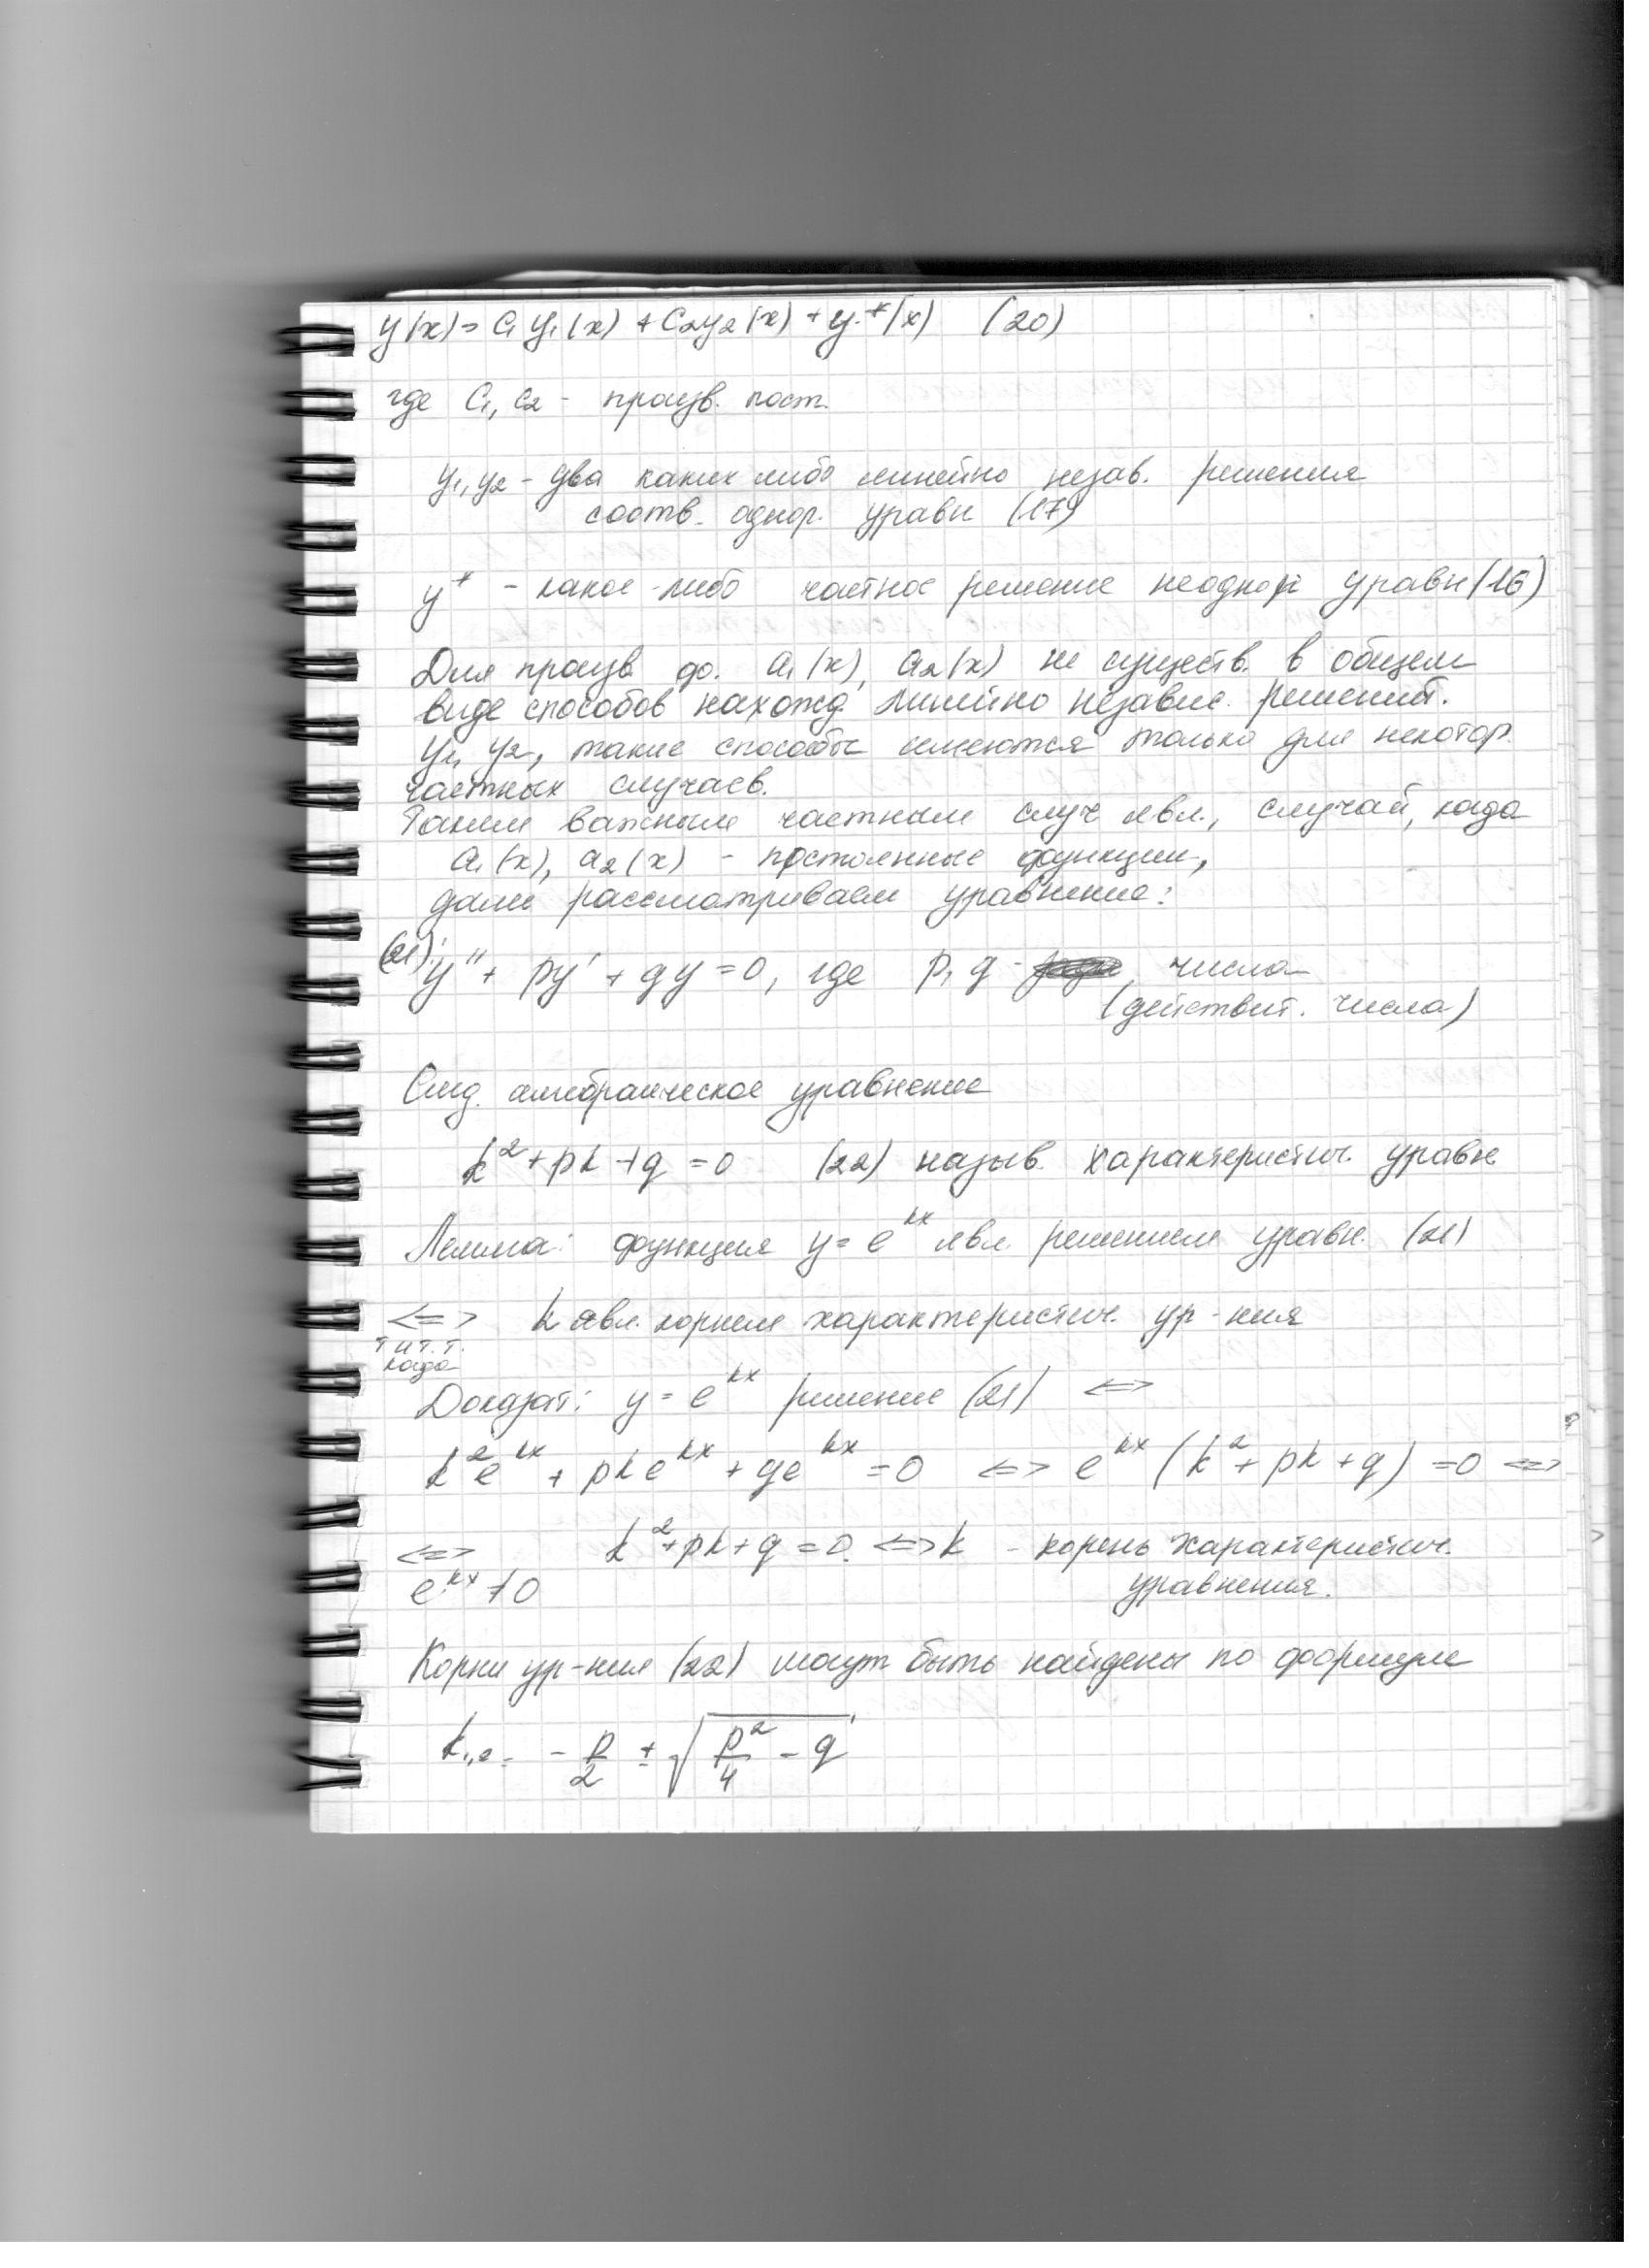 y(x) = C₁y₁(x) + C₂y₂(x) + y*(x) (20)
где C₁, C₂ - произв. пост.
y₁, y₂ - два каких либо линейно незав. решения
соотв. однор. уравн (17)
y* - какое-либо частное решение неоднор уравн (16)
Для произв ф. a₁(x), a₂(x) не существ. в общем
виде способов нахожд линейно независ. решений.
y₁, y₂, такие способы имеются только для некотор.
частных случаев.
Таким важным частным случ явл., случай, когда
a₁(x), a₂(x) - постоянные функции,
далее рассматриваем уравнение:
(21): y'' + py' + qy = 0, где p, q - числа
(действит. числа)
След. алгебраическое уравнение
k² + pk + q = 0 (22) назыв. характеристич. уравн.
Лемма: функция y = e^{kx} явл. решением уравн. (21)
<=> k явл. корнем характеристич. ур-ния
т. и т. т.
когда
Доказат: y = e^{kx} решение (21) <=>
k²e^{kx} + pke^{kx} + qe^{kx} = 0 <=> e^{kx} (k² + pk + q) = 0 <=>
<=> k² + pk + q = 0. <=> k - корень характеристич.
e^{kx} ≠ 0 уравнения.
Корни ур-ния (22) могут быть найдены по формуле
k₁,₂ = - p/2 ± √(p²/4 - q)